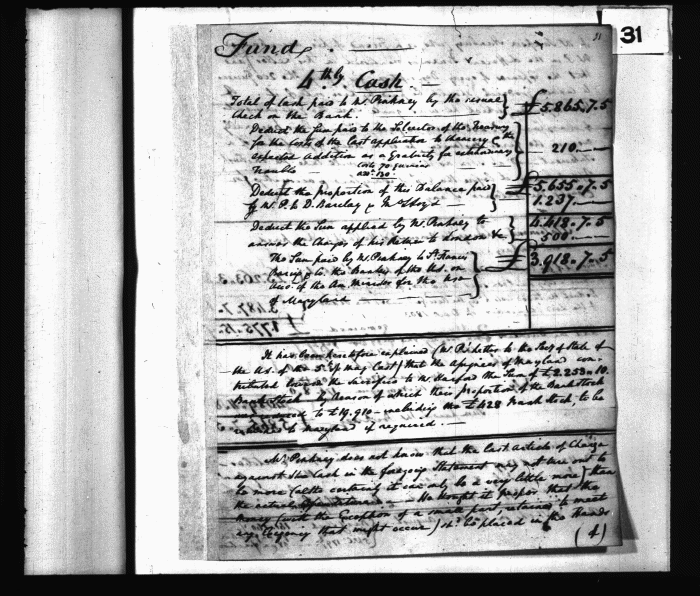 31
31
Fund.
4thly Cash
Total of Cash paid to Mr. Pinkney by the usual
Check on the Bank. £5.865.7.5
Deduct the Sum paid to the Solicitor of the Treasury
for the Costs of the last application to Chancery & the
expected Addition as a Gratuity for extraordinary
Trouble 210.
Costs 70 Guineas
£5.655.7.5
Deduct the proportion of this Balance paid
by Mr. P. to D. Barclay & Mr. Lloyd 1.237.
4.418.7.5
Deduct the Sum applied by Mr. Pinkney to
answer the Charges of his Return to London &c 500.
The Sum paid by Mr. Pinkney to Sr. Francis
Baring & Co. the Bankers of the U.S. on
Acct. of the Am. Minister for the Use
of Maryland £3.918.7.5
It has been heretofore explained (Mr. P's letter to the Secy of State of
the U.S. of the 5. of May last) that the Assignees of Maryland con-
tributed towards the Sacrifice to Mr. Harford the Sum of £2.253.10
Bank Stock by Reason of which their proportion of the Bank Stock
to £19,910 including the £428 Bank Stock, to be
to Maryland if required.
Mr. Pinkney does not know that the last Article of Charge
against the Cash in the foregoing Statement may not turn out to
be more (altho certainly it can only be a very little more) than
the actual Expenditure. He thought it proper that the
money (with the Exception of a small part, retained to meet
any Exigency that might occur) shd. be placed in the Hands
(4)